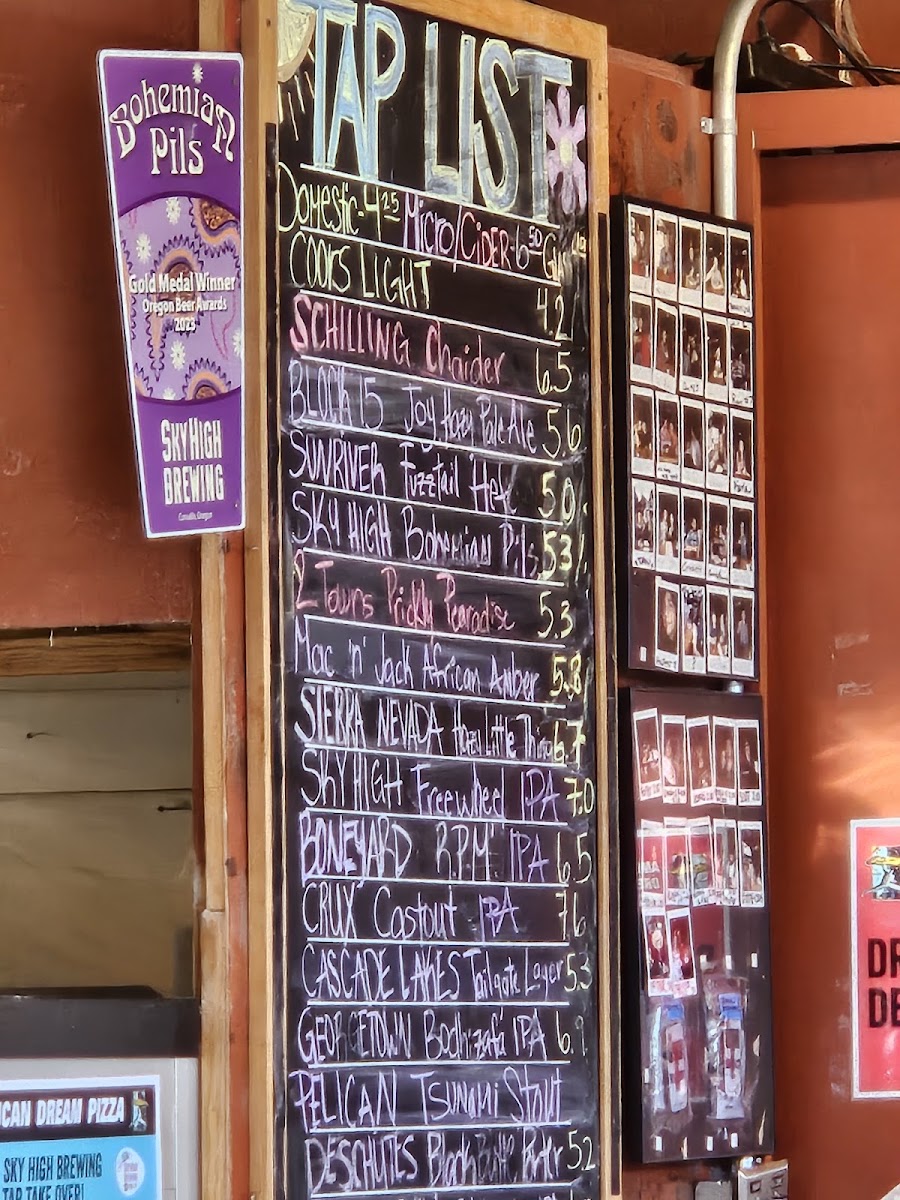 TAP LIST
Domestic-4.25 Micro/CIDER-6.50
COORS LIGHT 4.2
SCHILLING Chaider 6.5
BLOCK 15 Joy Hazy Pale Ale 5.6
SUNRIVER Fuzztail Hef 5.0
SKY HIGH Bohemian Pils 5.3
2 Towns Prickly Pearadise 5.3
Mac 'n' Jack African Amber 5.8
SIERRA NEVADA Hazy Little Thing 6.7
SKY HIGH Freewheel IPA 7.0
BONEYARD R.P.M IPA 6.5
CRUX Castout IPA 7.6
CASCADE LAKES Tailgate Lager 5.3
GEORGETOWN Bodhizafa IPA 6.9
PELICAN Tsunami Stout
DESCHUTES Black Butte Porter 5.2
Bohemian
Pils
Gold Medal Winner
Oregon Beer Awards
2023
SKY HIGH
BREWING
Corvallis, Oregon
ICAN DREAM PIZZA
SKY HIGH BREWING
TAP TAKE OVER!
DR
DE